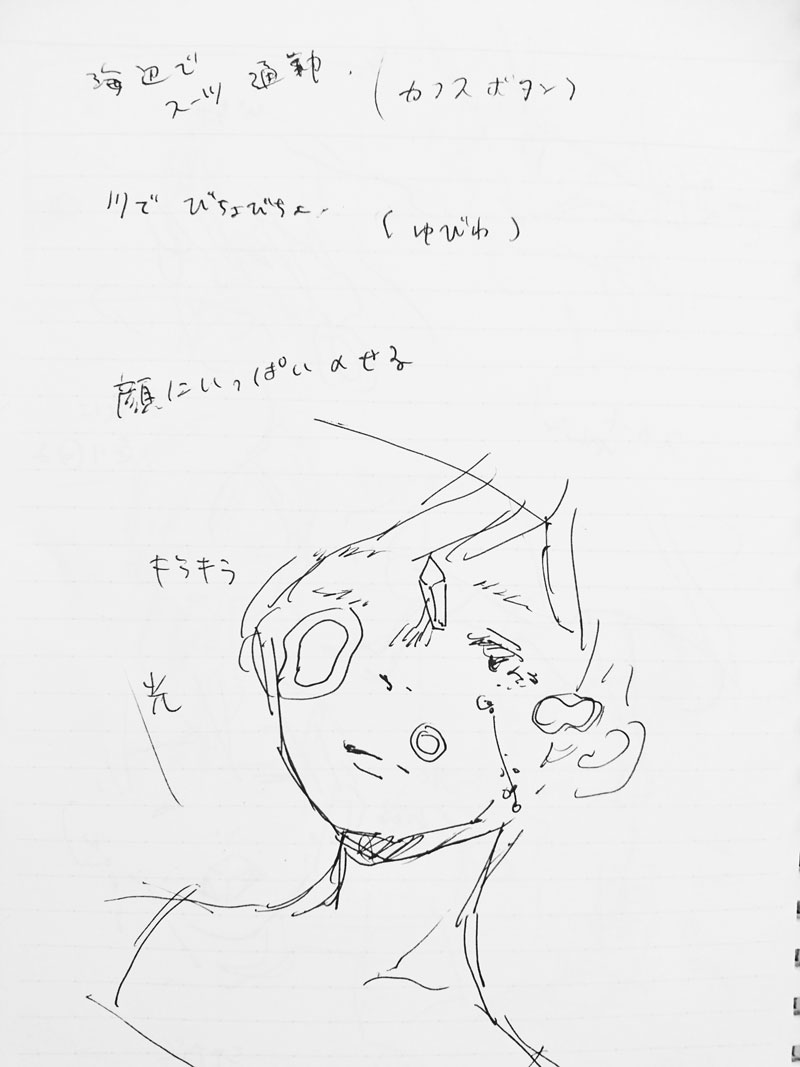 海辺で 通勤.
スーツ
(カフスボタン)
川で びちょびちょ.
(ゆびわ)
顔にいっぱいのせる
キラキラ
光